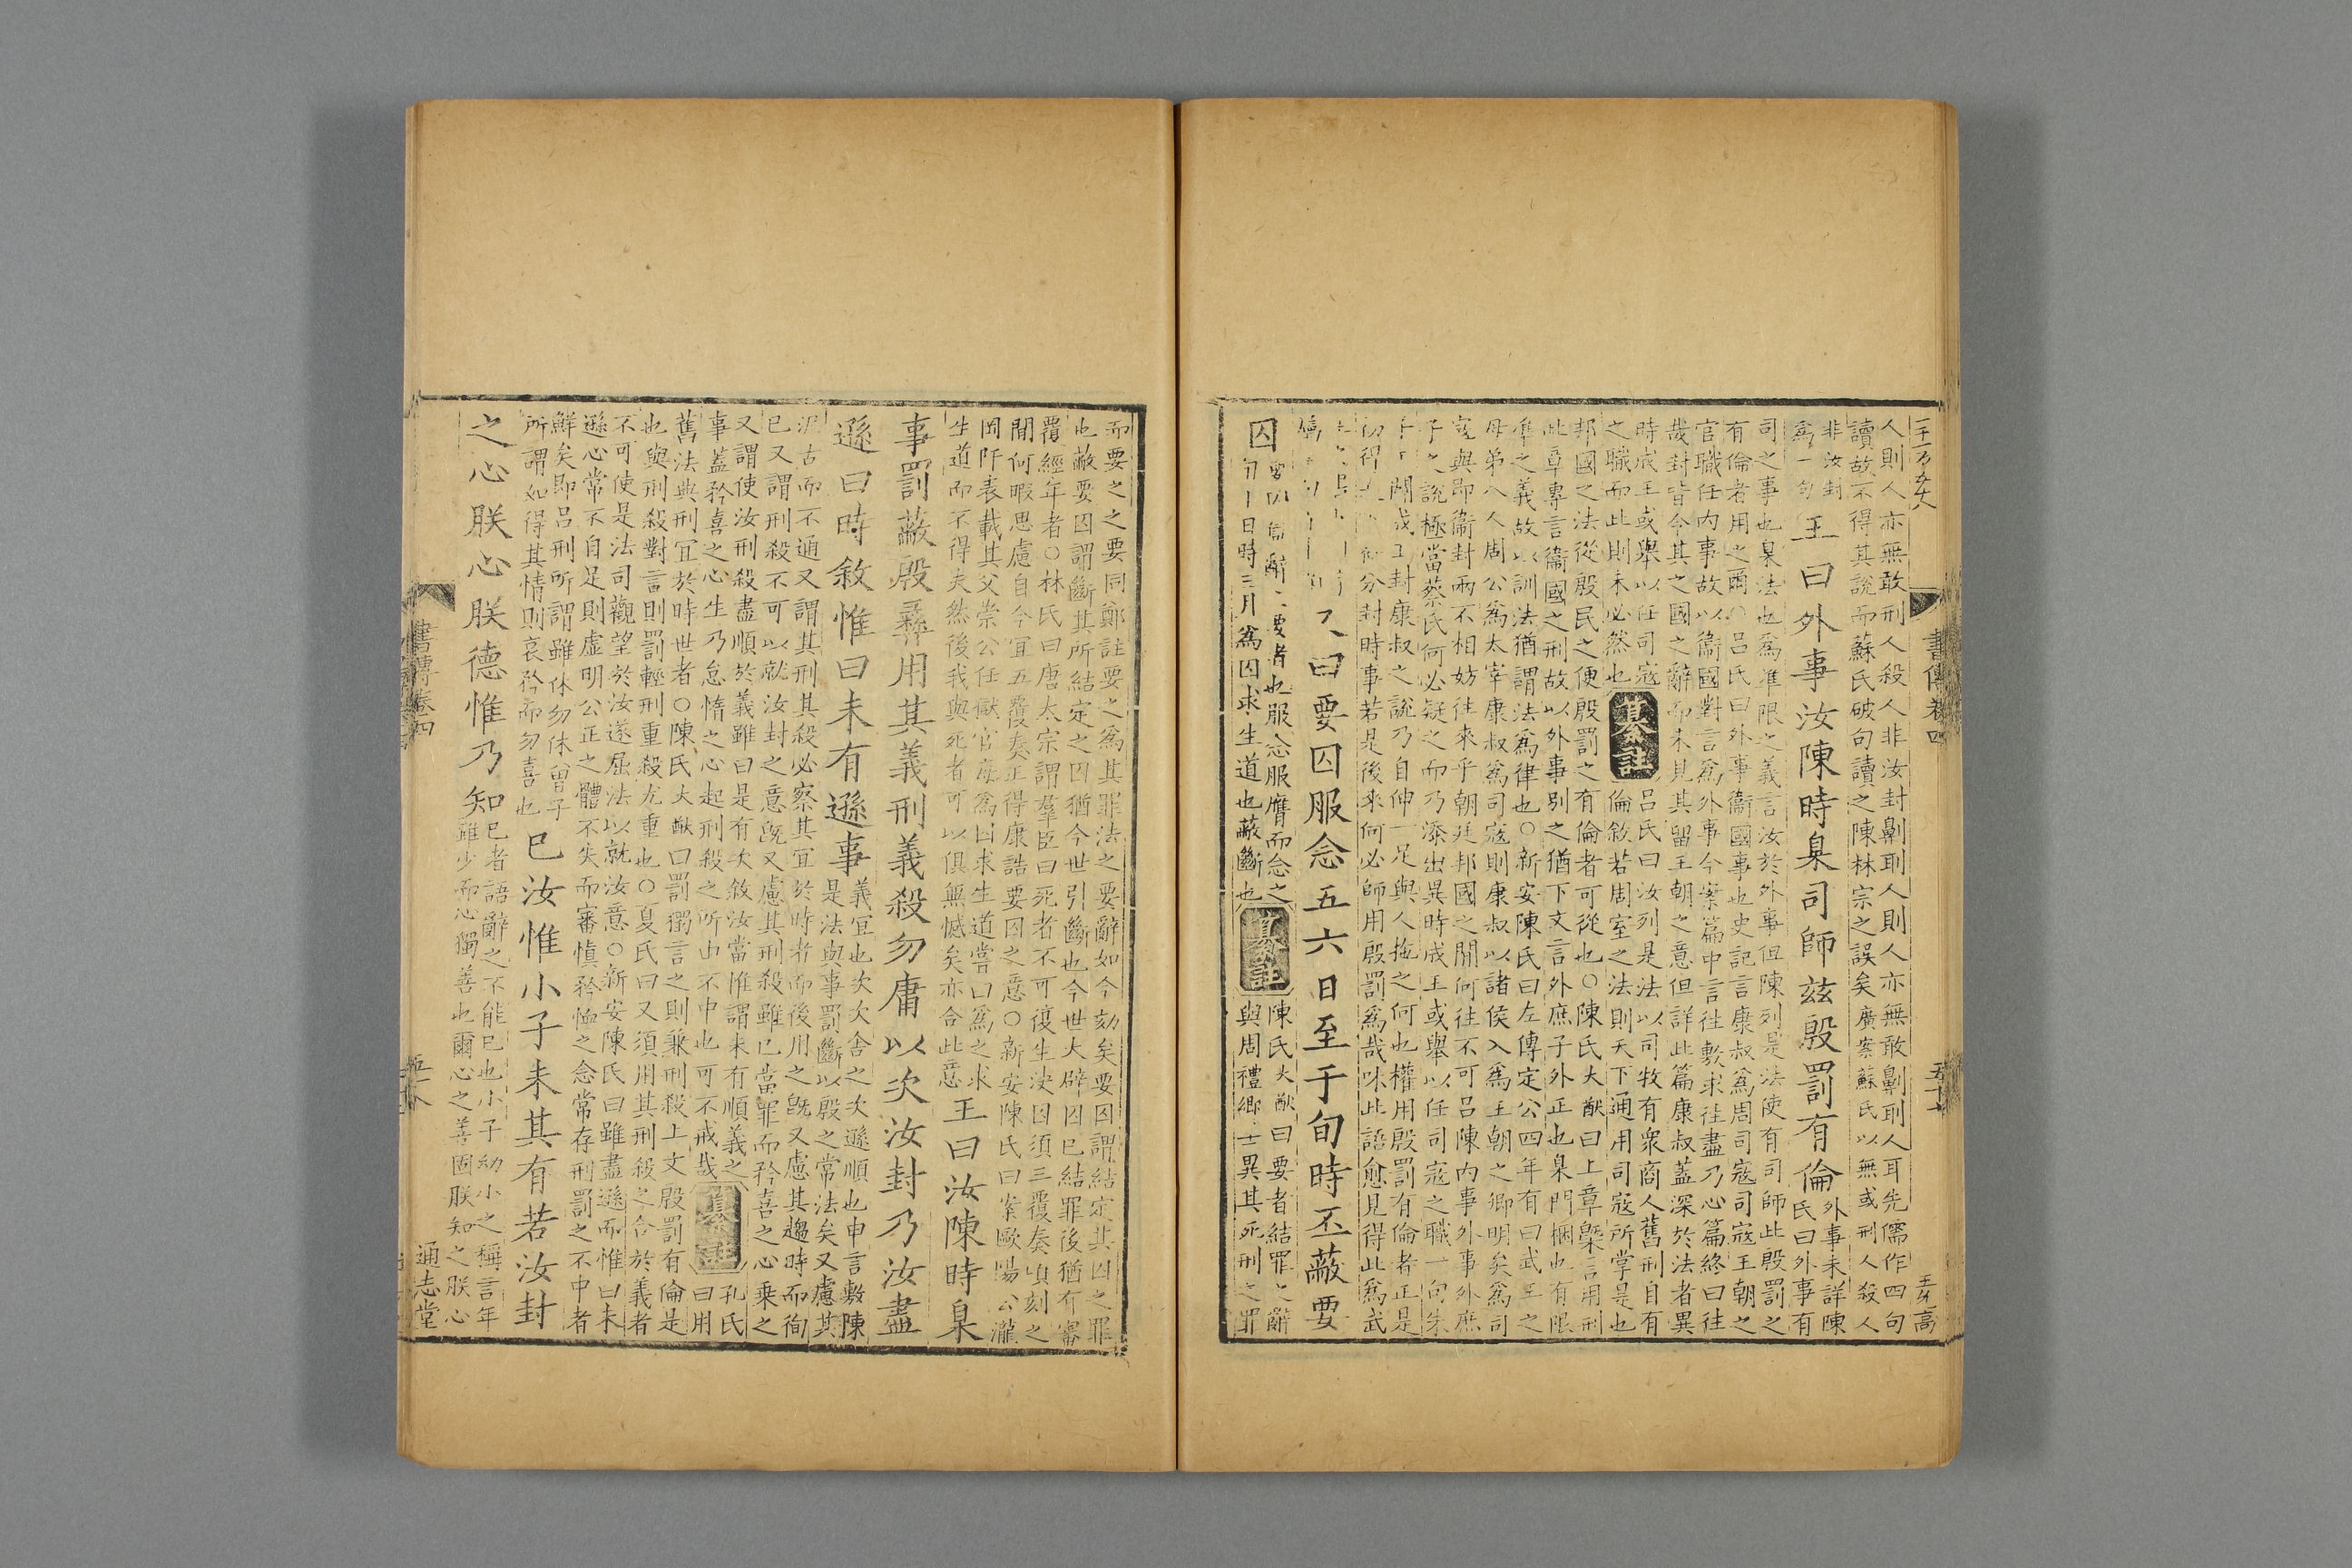 書傳卷四
人則人亦無敢刑人殺人非汝封劓刵人則人亦無敢劓刵人耳先儒作四句
讀故不得其說而蘇氏破句讀之陳林宗之誤矣廣案蘇氏以無或刑人殺人
非汝封
爲一句
王曰外事汝陳時臬司師茲殷罰有倫
外事未詳陳
氏曰外事有
司之事也臬法也爲準限之義言汝於外事但陳列是法使有司師此殷罰之
有倫者用之爾○呂氏曰外事衞國事也史記言康叔爲周司寇司寇王朝之
官職任內事故以衞國對言爲外事今案篇中言往敷求往盡乃心篇終曰往
哉封皆令其之國之辭而未見其留王朝之意但詳此篇康叔蓋深於法者異
時成王或舉以任司寇
之職而此則未必然也
纂註
呂氏曰汝列是法以司牧有衆商人舊刑自有
倫敘若周室之法則天下通用司寇所掌是也
邦國之法從殷民之便殷罰之有倫者可從也○陳氏大猷曰上章槩言用刑
此章專言衞國之刑故以外事別之猶下文言外庶子外正也臬門梱也有限
準之義故以訓法猶謂法爲律也○新安陳氏曰左傳定公四年有曰武王之
母弟八人周公爲太宰康叔爲司寇則康叔以諸侯入爲王朝之卿明矣爲司
寇與即衞封兩不相妨往來乎朝廷邦國之間何往不可呂陳內事外事外庶
子之說極當蔡氏何必疑之而乃添出異時成王或舉以任司寇之職一句朱
封康叔之說乃自伸一足與人拖之何也權用殷罰有倫者正是
分封時事若是後來何必師用殷罰爲哉味此語愈見得此爲武
曰要囚服念五六日至于旬時丕蔽要
囚
要者也服念服膺而念之
日時三月爲囚求生道也蔽斷也
纂註
陳氏大猷曰要者結罪之辭
與周禮鄉士異其死刑之罪
而要之之要同鄭註要之爲其罪法之要辭如今劾矣要囚謂結定其囚之罪
也蔽要囚謂斷其所結定之囚猶今世引斷也今世大辟囚已結罪後猶有審
覆經年者○林氏曰唐太宗謂羣臣曰死者不可復生決囚須三覆奏頃刻之
間何暇思慮自今宜五覆奏正得康誥要囚之意○新安陳氏曰案歐陽公瀧
岡阡表載其父崇公任獄官每爲囚求生道嘗曰爲之求
生道而不得夫然後我與死者可以俱無憾矣亦合此意
王曰汝陳時臬
事罰蔽殷彝用其義刑義殺勿庸以次汝封乃汝盡
遜曰時敘惟曰未有遜事
義宜也次次舍之次遜順也申言敷陳
是法與事罰斷以殷之常法矣又慮其
泥古而不通又謂其刑其殺必察其宜於時者而後用之旣又慮其趨時而徇
已又謂刑殺不可以就汝封之意旣又慮其刑殺雖已當罪而矜喜之心乗之
又謂使汝刑殺盡順於義雖曰是有次敘汝當惟謂未有順義之
事蓋矜喜之心生乃怠惰之心起刑殺之所由不中也可不戒哉
纂註
孔氏
曰用
舊法典刑宜於時世者○陳氏大猷曰罰獨言之則兼刑殺上文殷罰有倫是
也與刑殺對言則罰輕刑重殺尤重也○夏氏曰又須用其刑殺之合於義者
不可使是法司觀望於汝遂屈法以就汝意○新安陳氏曰雖盡遜而惟曰未
遜心常不自足則虛明公正之體不失而審愼矜恤之念常存刑罰之不中者
鮮矣即呂刑所謂雖休勿休曾子
所謂如得其情則哀矜而勿喜也
已汝惟小子未其有若汝封
之心朕心朕德惟乃知
已者語辭之不能已也小子幼小之稱言年
雖少而心獨善也爾心之善固朕知之朕心
書傳卷四
通志堂